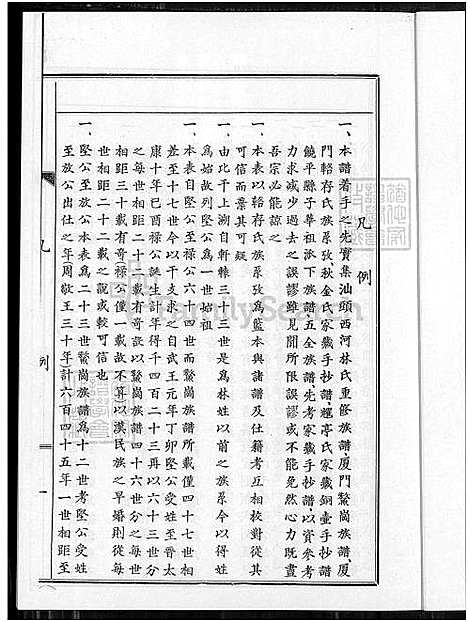 凡例
一、本譜着手之先實集汕頭西河林氏重修族譜、厦門鰲崗族譜、厦
門輅存氏族系攷、秋金氏家藏手抄譜、耀亭氏家藏銅壷手抄譜
饒平縣子華祖派下族譜、五全族譜、先考家藏手抄譜、以資參考
力求減少過去之誤謬雖見聞所限誤謬或不能免然心力既盡
吾宗必能諒之
一、本表以輅存氏族系攷為藍本與諸譜及仕籍考互相校對從其
可信而棄其可疑
一、由比干上溯自軒轅三十三世是為林姓以前之族系今以得姓
為始故列堅公為一世始祖
一、本表自堅公至祿公六十四世而鰲崗族譜所載僅四十七世相
差至十七世今以干支求之自武王元年丁卯堅公受姓至晉太
康十年己酉祿公誕生計年得千四百二十三再以六十三世分
之每世相距二十二載有奇設以鰲崗族譜四十六世分之每世
相距三十載有奇(祿公僅一載故不算)以漢民族之早婚則從每
世相距二十二載之說或較可信也
一、堅公至放公本表為二十三世鰲崗族譜為十二世考堅公受姓
至放公出仕之年周敬王三十年)計六百四十五年一世相距至
凡例
一
FamilySearch